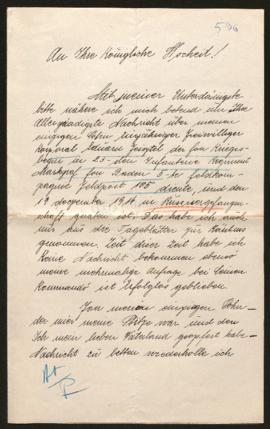 596
An Ihre Königliche Hocheit!
Mit meiner Unterdänigste
bitte nähere ich mich betend um die
Allergnädigste Nachricht über meinen
einzigen Sohn einjähriger Freiwilliger
Korporal der fon Kriegs-
begin in 23-den Infanterie Regiment
Markgraf fon Baden 5-te feldkom-
pagnie Feldpost 105 diente, und den
19 Dezember 1914 in Russengefangen-
schaft geraten ist. Das habe ich auch
nur aus die Tageblätter zur Kentnis
genommen. Zeit drei Zeit habe ich
keine Nachricht bekommen ebenso
meine mehrmalige Anfrage bei
Kommando ist Erfolglos geblieben
Fon meinen einzigen Sohn
der mir meine Stütze war und den
Ich mein lieben Vaterland geopfert habe
Nachricht zu betten wiederholle ich